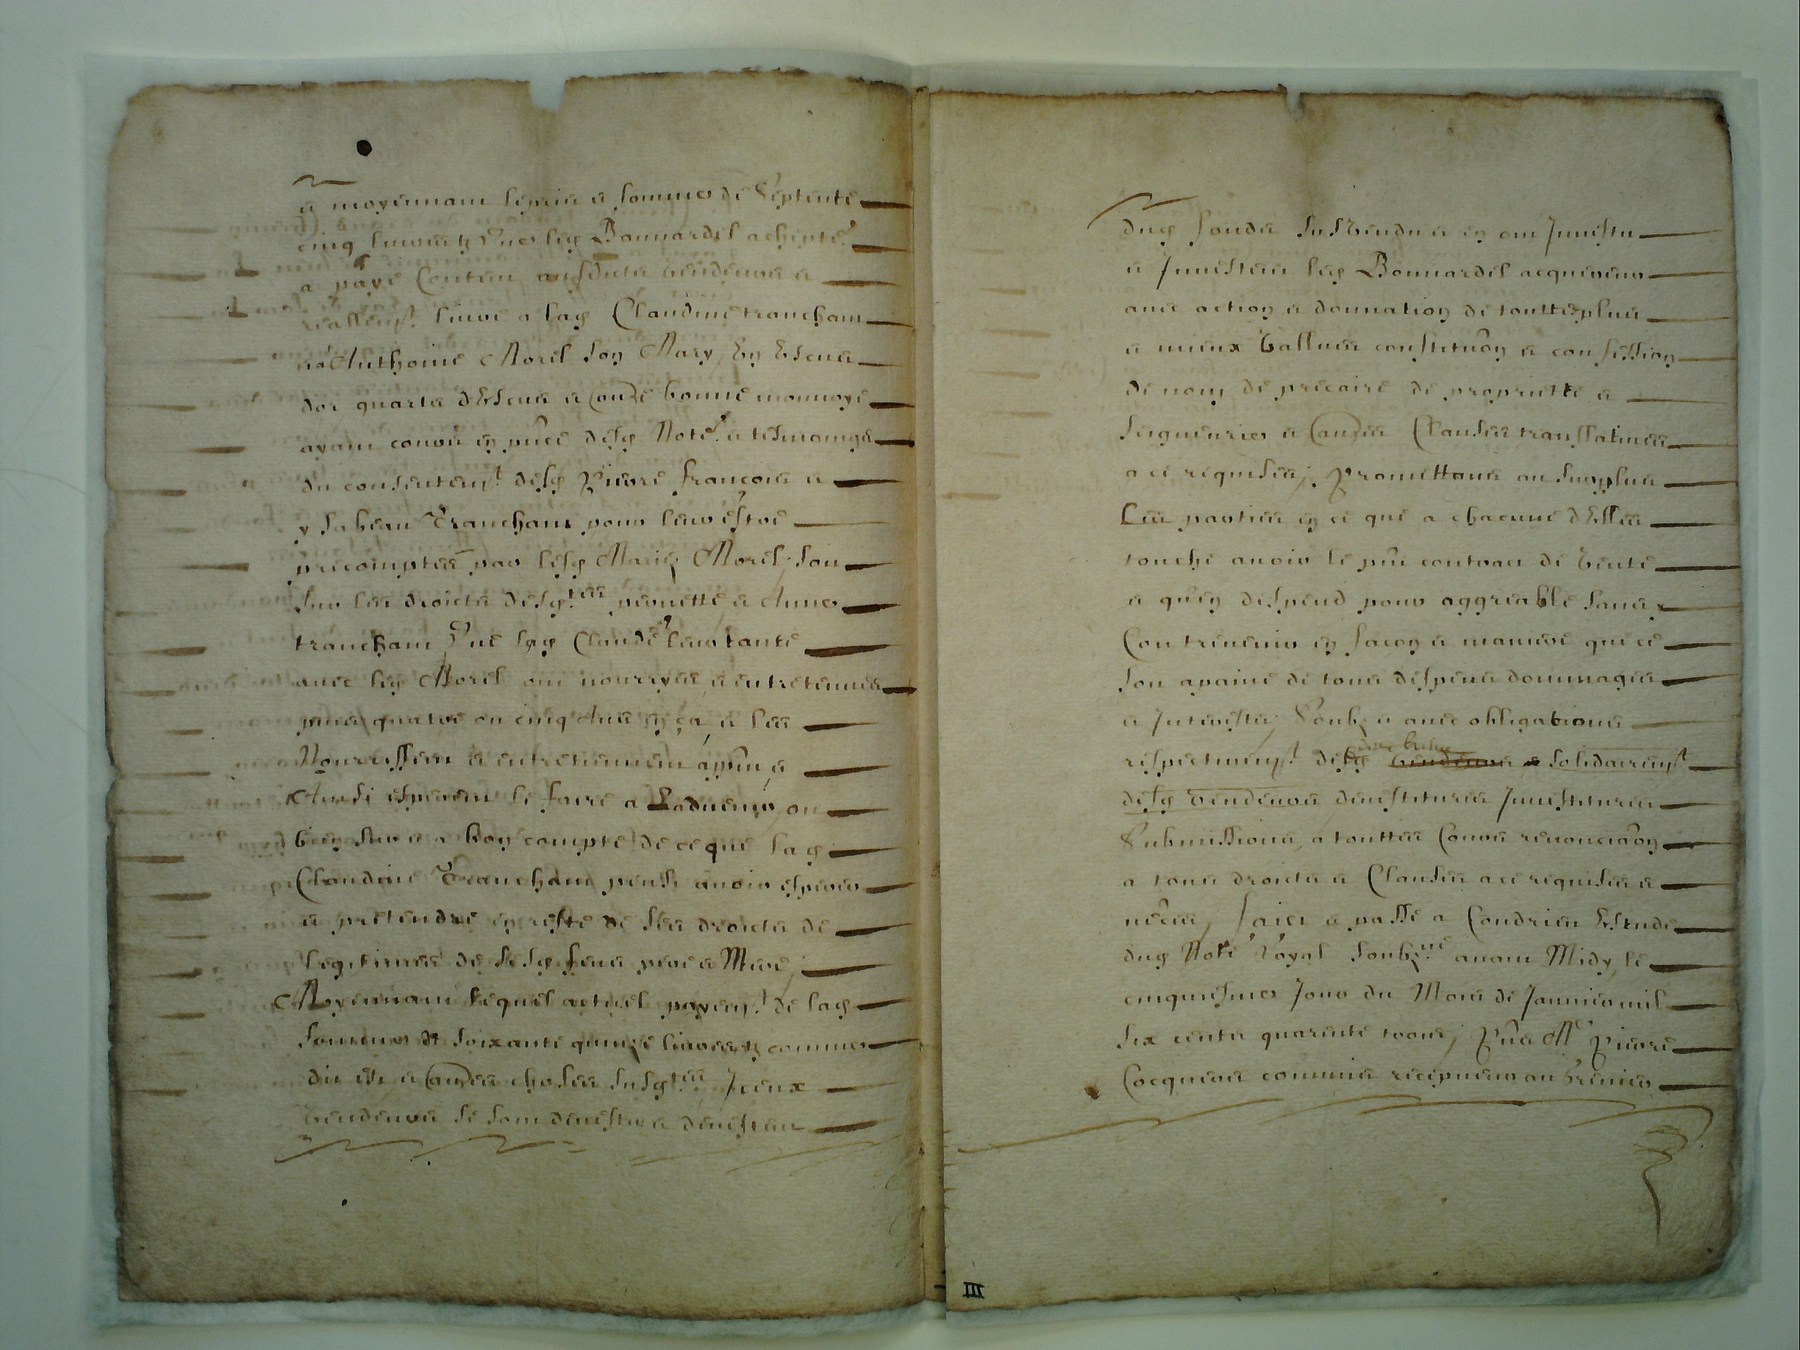 et moyennant le prix et somme de septente
cinq livres tz que led Bonnardel achepter
a payé contant ausdits vendeurs et
reallemt livré a lad Claudine tranchant
et Anthoine Morel son Mary, En Escus
dor quarts dEscus et autre bonne monnoye
ayant cours en pnce desd Notre et tesmoings
du consentemt desd Pierre francois et
ysabeau Tranchant pour leur estre
precomptes par lesd Mariez Morel, soit
sur les droicts desdtes pernette et Anne
tranchant que lad Claude leur tante
avec led Morel ont nourryes et entretenues
puis quatre ou cinq Ans en ça, et les
Nourrissent et entretiennent apnt, et
Aussi esperent le faire a Ladvenir, ou
bien sur et a bon compte de ce que lad
Claudine Tranchant peust avoir esperer
et pretendre en reste de ses droicts de
legitimes de sesd feus pere et Mere,
Moyennant lequel actuel payemt de lad
somme de soixante quinze livres tz comme
dit est et autres choses susdtes Iceux
vendeurs se sont devestus et devestent
dud fonds sus vendu et en ont Investu
et Investent led Bonnardel acquereur
avec action et donnation de touttes plus
et mieux vallues constituon et confession
de nom de precaire de proprietté et
seigneurie et autres Clauses translatives
a ce requises, Promettans au surplus
Les parties en ce que a chacune dElles
touche avoir le pnt contract de vente
et qu'en despend pour aggreable sans
Contrevenir en facon et maniere que ce
soit a paine de tous despens dommages
et Interests, soubz et avec obligations
respectivemt desd vendeurs et solidairemt
desd vendeurs devestitures Investitures
submissions, a touttes Cours renonciaon
a tous droicts et Clauses a ce requises et
neccres, faict et passé a Condrieu Estude
dud Notre Royal soubzne avant Midy, le
cinquiesme Jour du Mois de Janvier mil
six cents quarente troois, Pnts Me Pierre
Cocqueret commis recepveur au Grenier
III